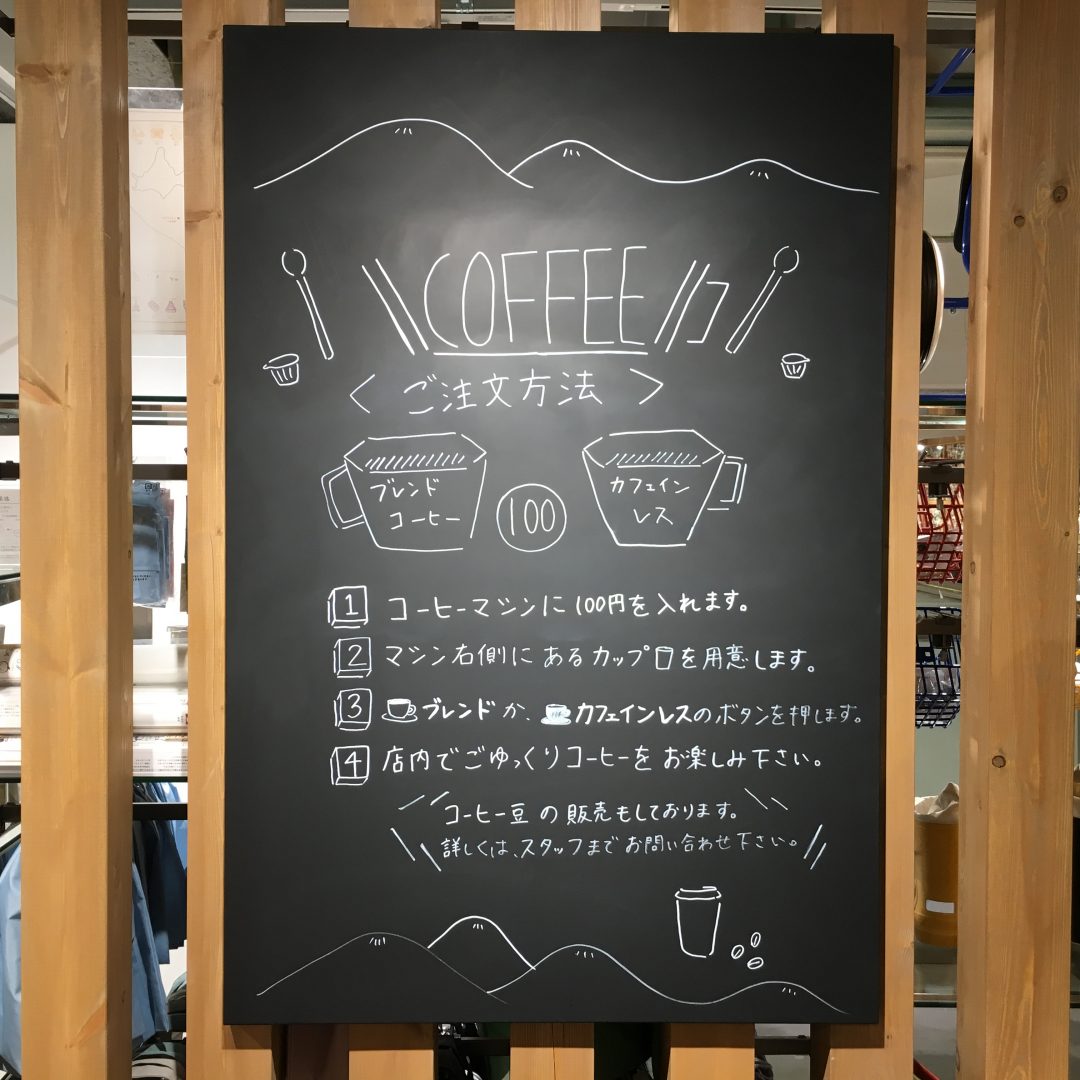 COFFEE
〈ご注文方法〉
ブレンド
コーヒー
100
カフェイン
レス
1 コーヒーマシンに100円を入れます。
2 マシン右側にあるカップを用意します。
3 ブレンドか、カフェインレスのボタンを押します。
4 店内でごゆっくりコーヒーをお楽しみ下さい。
コーヒー豆の販売もしております。
詳しくは、スタッフまでお問い合わせ下さい。